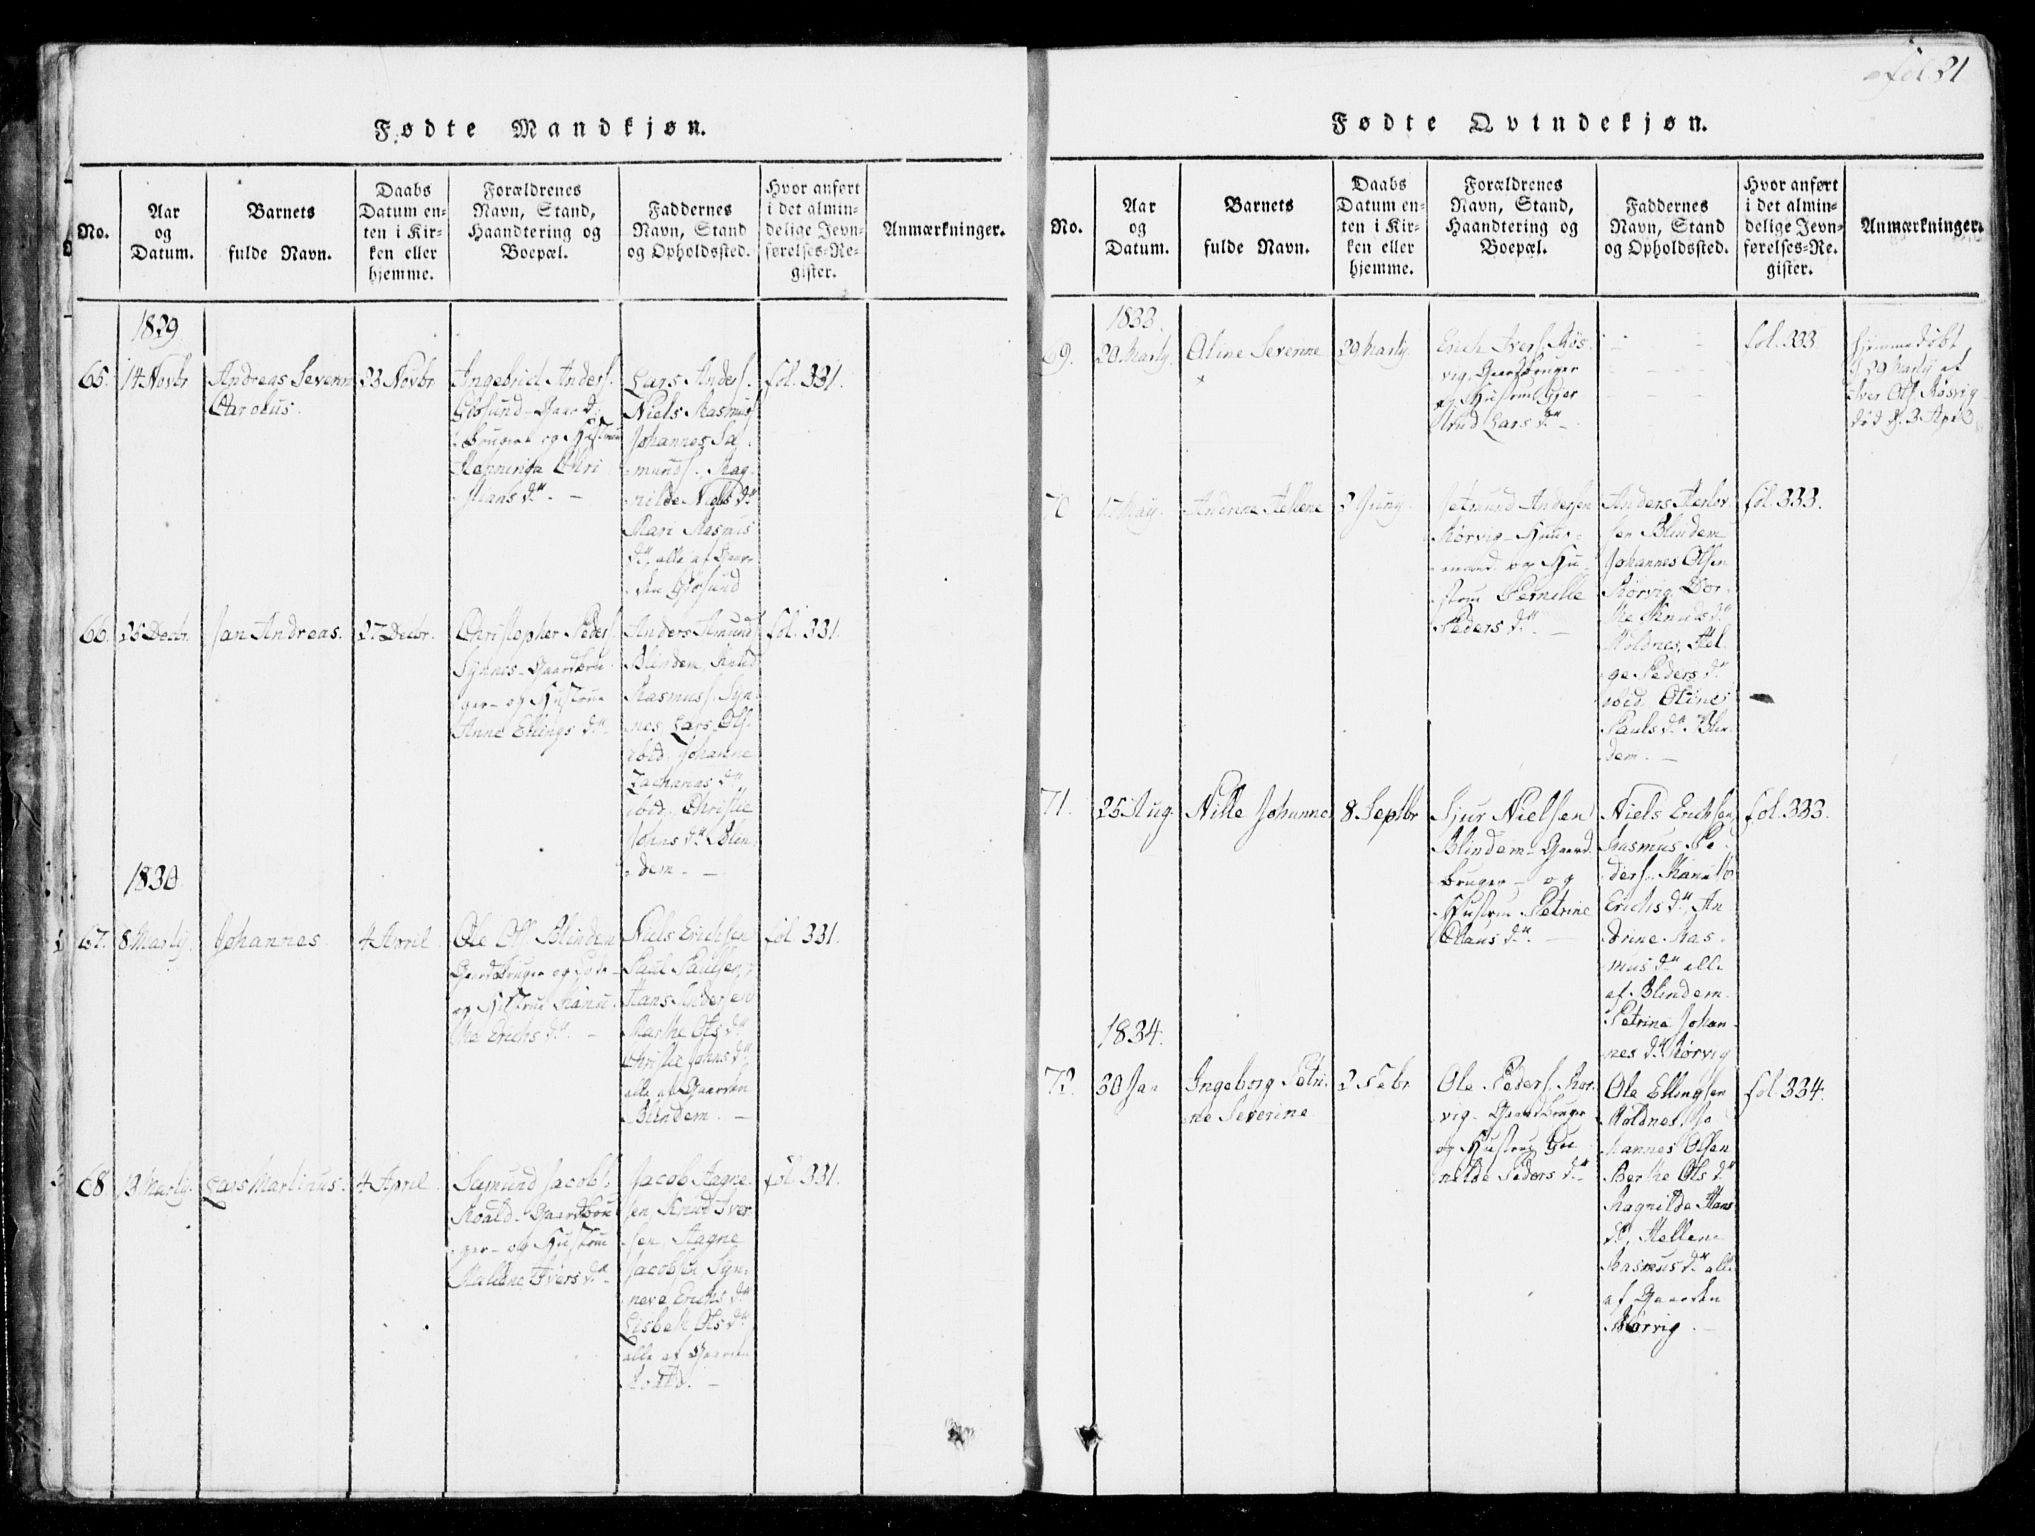 Fødte Mandkjøn.
No.
Aar
og
Datum.
Barnets
fulde Navn.
Daabs
Datum en-
ten i Kir-
ken eller
hjemme.
Forældrenes
Navn, Stand,
Haandtering og
Boepæl.
Faddernes
Navn, Stand
og Opholdssted.
Hvor anført
i det almin-
delige Jevn-
førelses-Re-
gister.
Anmærkninger.
1829
65.
14 Novbr
Andreas Severin
Carolus.
23 Novbr
Ingebrict Anders.
Giøsund - Gaard
bruger og Hustrue
Christians dr. -
Lars Anders.
Niels Rasmus
Johannes Sa
munds. Rag-
nilde Niels dr
Mari Rasmus
dr, alle af Gaar-
den Giøsund
fol. 331.
66.
26 Decbr.
Jan Andreas.
27 Decbr.
Christopher Peders.
Synnes - Gaardbru
ger - og Hustrue
Anne Ellings dr
Anders Amunds
Blindem, Knud
Rasmuss. Syn-
nes, Lars Ols.
ibid. Johanne
Zacharias dr
ibid. Christie
Johns dr Blin
dem. -
fol. 331
1830
67.
8 Marty.
Johannes.
4 April.
Ole Ols. Blindem
Gaardbruger og
og Hustrue Ranu
the Erichs dr. -
Niels Erichsen
Paul Paulsen,
Hans Andersen
Marthe Ols dr
Christie Johns dr
alle af Gaarden
Blindem. -
fol. 331.
68
13 Marty.
Lars Martinus.
4 April.
Samund Jacobs.
Roald - Gaardbru
ger - og Hustrue
Mallene Ivers dr
Jacob Aagne
sen, Knud Iver
sen, Aagne
Jacobsen, Syn-
neve Erichs dr
Lisbeth Ols dr
alle af Gaarden
Roald. -
fol. 331.
Fol 21
Fødte Qvindekjøn.
No.
Aar
og
Datum.
Barnets
fulde Navn.
Daabs
Datum en-
ten i Kir-
ken eller
hjemme.
Forældrenes
Navn, Stand,
Haandtering og
Boepæl.
Faddernes
Navn, Stand
og Opholdssted.
Hvor anført
i det almin-
delige Jevn-
førelses-Re-
gister.
Anmærkninger.
1833.
69.
20 Marty.
Oline Severine
29 Marty.
Erich Ivers. Røs-
vig. Gaardbruger
og Hustrue Gier
trud Lars dr -
fol. 333
hjemmedøbt
d. 29 Marty af
Iver Ols. Røsvig
død d. 3 April
70
17 May.
Anderine Hellene
2 Juny.
Setmund Andersen
Rørvig - Huus-
mand og Hu-
strue Pernille
Peders dr. -
Anders
sen Blindem
Johannes Olsen
Rørvig, Dor-
the Knuds dr
Moldnes, Hel-
ge Peders dr
ibid, Oline
Pauls dr Blin
dem. -
fol. 333.
71.
25 Aug.
Nille Johanne
8 Septbr
Sjur Nielsen
Blindem - Gaard
bruger - og
Hustrue Petrine
Claus dr. -
Niels Erichsen
Rasmus Pe-
ders. Ranitte
Erichs dr, An
drine Ras-
mus dr alle
af Blindem.
Petrine Johan-
nes dr Rørvig
fol. 333.
1834.
72.
30 Ja-
Ingeborg Petri-
ne Severine
2 Febr.
Ole Peders. Rør-
vig - Gaardbruger
og Hustrue Gu
nilde Peders dr -
Ole Ellingsen
Moldnes, Jo
hannes Olsen
Berthe Ols dr
Ragnilde Hans
dr, Hellene
Rasmus dr alle
af Gaarden
Rørvig. -
fol. 334.